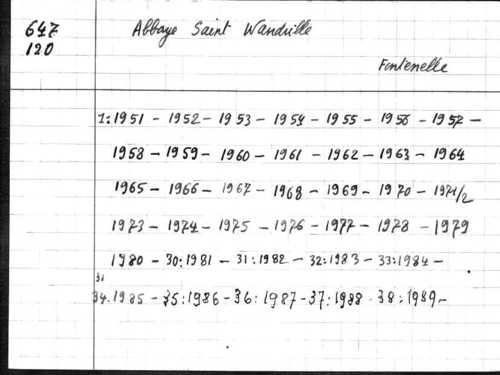 647
120
Abbaye Saint Wandrille
Fontenelle
1:1951 - 1952 - 1953 - 1954 - 1955 - 1956 - 1957 -
1958 - 1959 - 1960 - 1961 - 1962 - 1963 - 1964
1965 - 1966 - 1967 - 1968 - 1969 - 1970 - 1971/2
1973 - 1974 - 1975 - 1976 - 1977 - 1978 - 1979
1980 - 30:1981 - 31:1982 - 32:1983 - 33:1984 -
34:1985 - 35:1986 - 36:1987 - 37:1988 - 38:1989 -